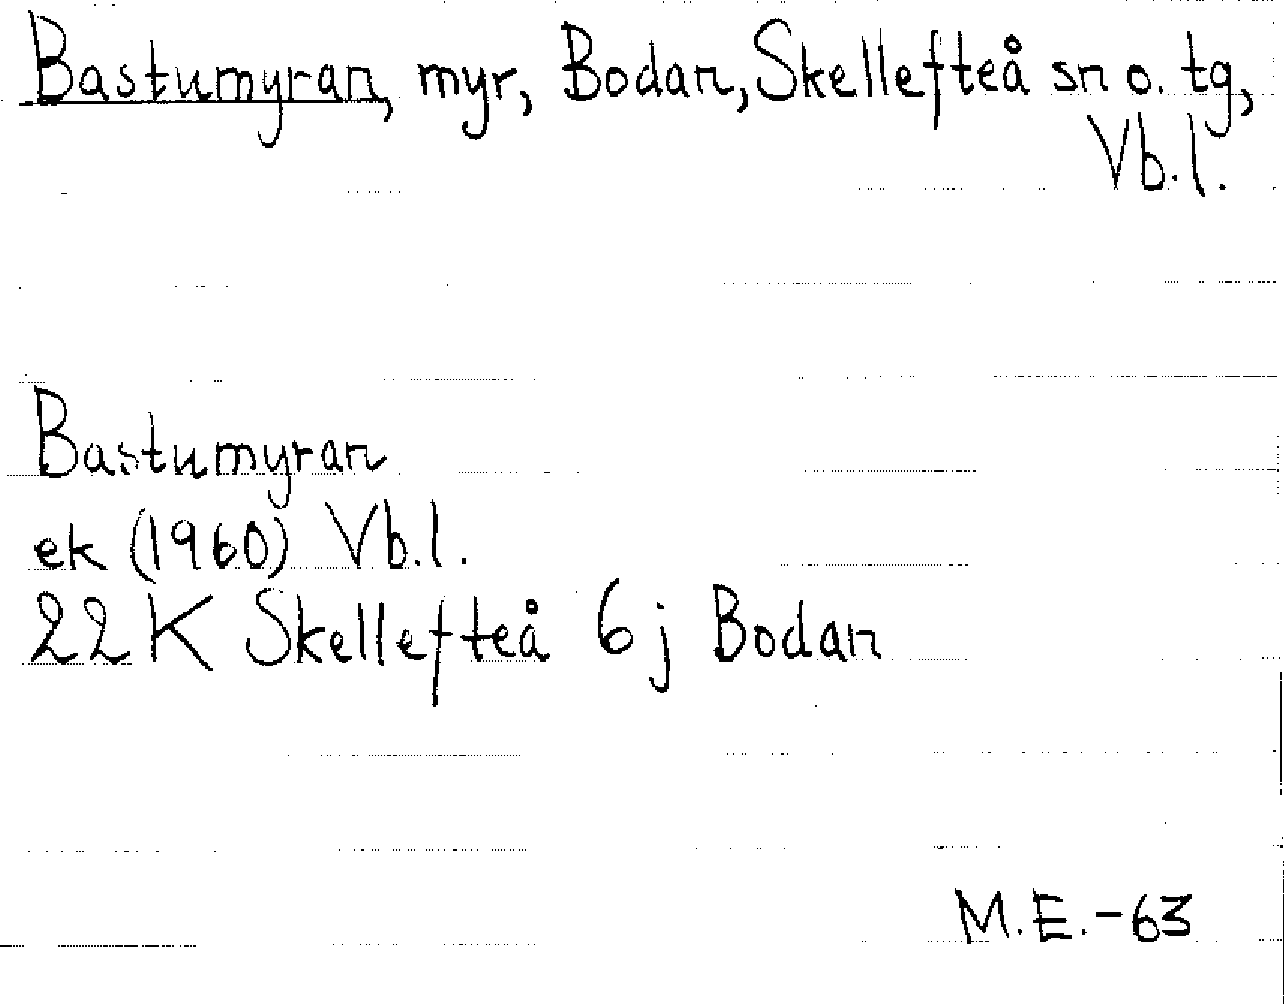 Bastumyran, myr, Bodan, Skellefteå sn o. tg,
Vb.l.
Bastumyran
ek (1960) Vb.l.
22 K Skellefteå 6 j Bodan
M.E.-63